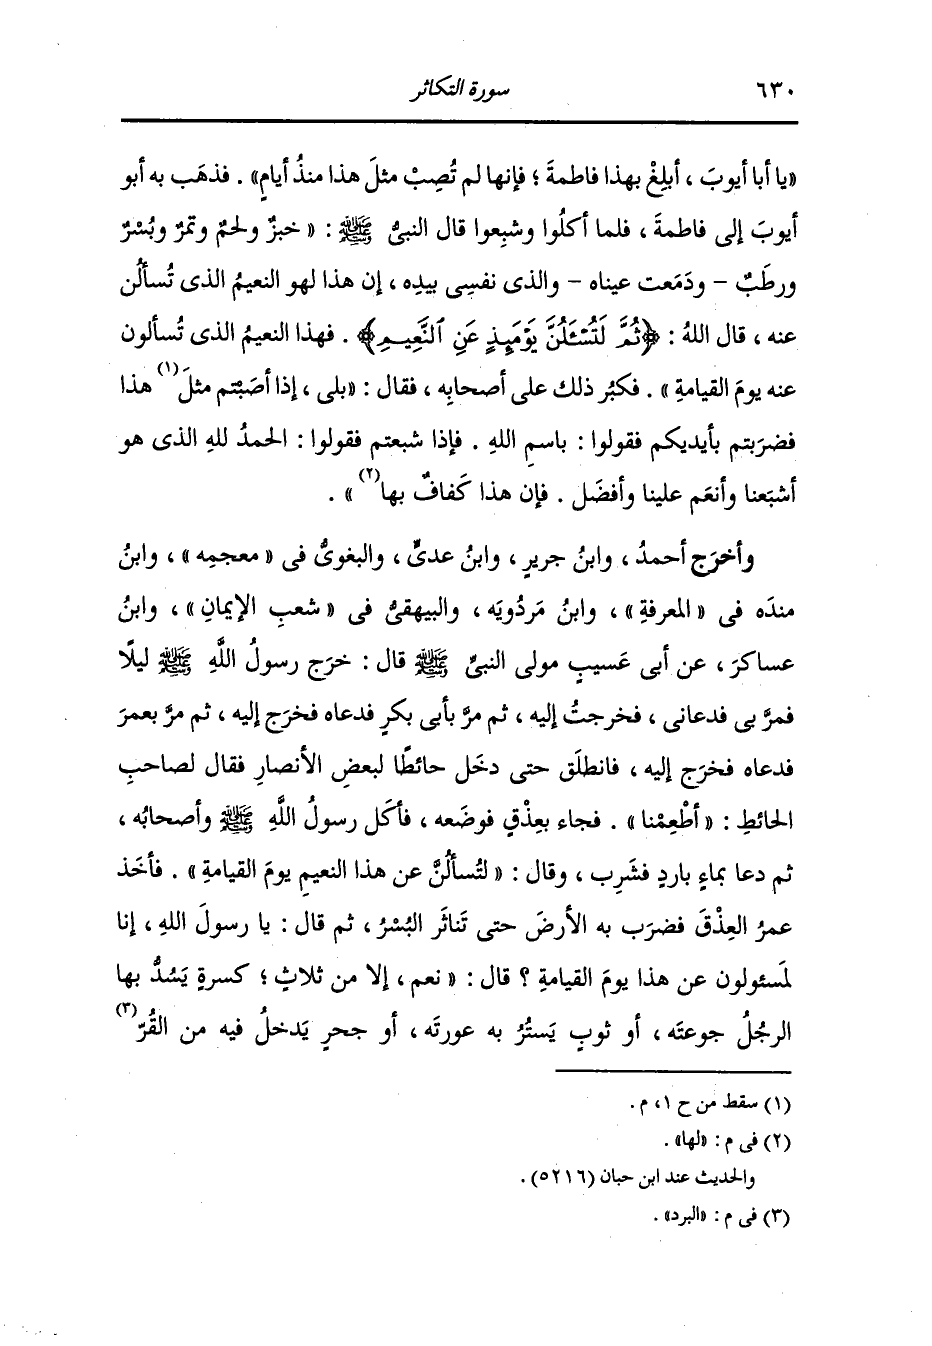 ٦٣٠ سورة التكاثر
«يا أبا أيوبَ ، أبلِغْ بهذا فاطمةَ ؛ فإنها لم تُصِبْ مثلَ هذا منذُ أيامٍ» . فذهَب به أبو
أيوبَ إلى فاطمةَ ، فلما أكلُوا وشبِعوا قال النبىُّ ﷺ : « خبزٌ ولحمٌ وتمرٌ وبُسْرٌ
ورطَبٌ – ودَمَعت عيناه – والذى نفسِى بيدِه ، إن هذا لهو النعيمُ الذى تُسألُن
عنه ، قال اللهُ : ﴿ثُمَّ لَتُسْـَٔلُنَّ يَوْمَئِذٍ عَنِ ٱلنَّعِيمِ﴾ . فهذا النعيمُ الذى تُسألون
عنه يومَ القيامةِ » . فكبُر ذلك على أصحابِه ، فقال : «بلى ، إذا أصَبْتم مثلَ(١) هذا
فضرَبتم بأيديكم فقولوا : باسمِ اللهِ . فإذا شبعتم فقولوا : الحمدُ للهِ الذى هو
أشبَعنا وأنعَم علينا وأفضَل . فإن هذا كَفافٌ بها(٢) » .
وأخرَج أحمدُ ، وابنُ جريرٍ ، وابنُ عدىٍّ ، والبغوىُّ فى « معجمِه » ، وابنُ
مندَه فى « المعرفةِ » ، وابنُ مَردُويَه ، والبيهقىُّ فى « شعبِ الإيمانِ » ، وابنُ
عساكرَ ، عن أبى عَسيبٍ مولى النبىِّ ﷺ قال : خرَج رسولُ اللَّهِ ﷺ ليلًا
فمرَّ بى فدعانى ، فخرجتُ إليه ، ثم مرَّ بأبى بكرٍ فدعاه فخرَج إليه ، ثم مرَّ بعمرَ
فدعاه فخرَج إليه ، فانطلَق حتى دخَل حائطًا لبعضِ الأنصارِ فقال لصاحبِ
الحائطِ : « أطْعِمْنا » . فجاء بعِذْقٍ فوضَعه ، فأكَل رسولُ اللَّهِ ﷺ وأصحابُه ،
ثم دعا بماءٍ باردٍ فشرِب ، وقال : « لتُسألُنَّ عن هذا النعيمِ يومَ القيامةِ » . فأخَذ
عمرُ العِذْقَ فضرَب به الأرضَ حتى تَناثَر البُسْرُ ، ثم قال : يا رسولَ اللهِ ، إنا
لمَسئولون عن هذا يومَ القيامةِ ؟ قال : « نعم ، إلا من ثلاثٍ ؛ كسرةٍ يَسُدُّ بها
الرجُلُ جوعتَه ، أو ثوبٍ يَستُرُ به عورتَه ، أو جحرٍ يَدخلُ فيه من القُرِّ(٣)
(١) سقط من ح ١، م .
(٢) فى م : «لها» .
والحديث عند ابن حبان (٥٢١٦) .
(٣) فى م : «البرد» .